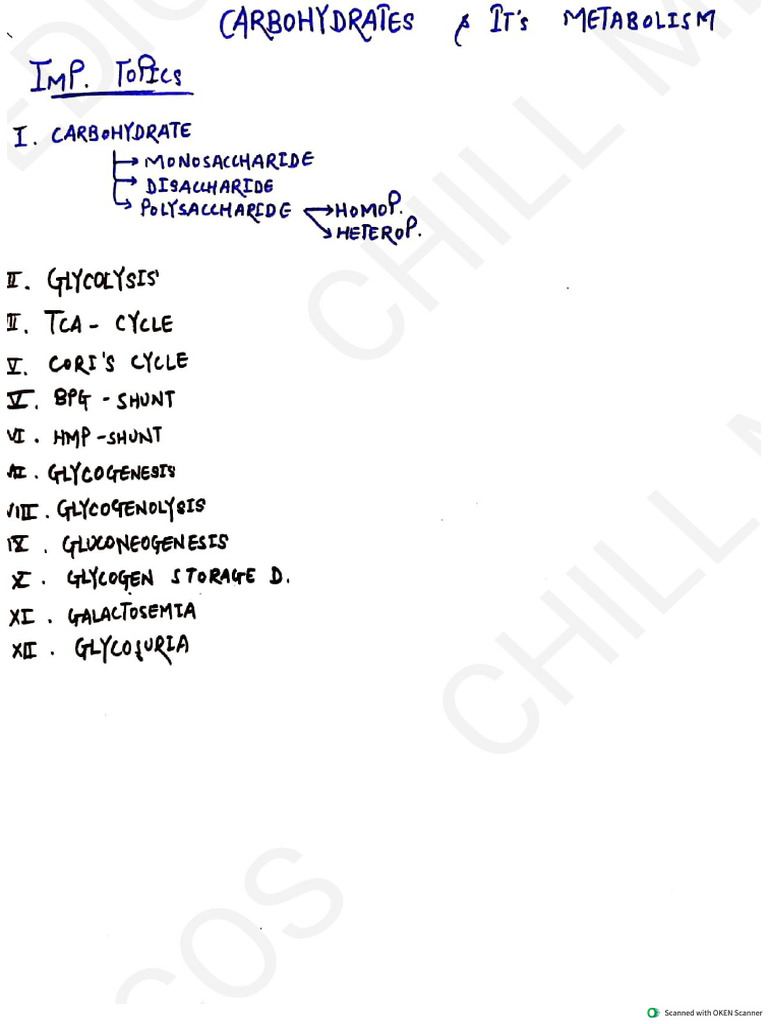 CARBOHYDRATES & IT'S METABOLISM
IMP. TOPICS
I. CARBOHYDRATE
MONOSACCHARIDE
DISACCHARIDE
POLYSACCHARIDE HOMOP.
HETEROP.
II. GLYCOLYSIS
II. TCA - CYCLE
V. CORI'S CYCLE
V. BPG - SHUNT
VI. HMP-SHUNT
VII. GLYCOGENESIS
VIII. GLYCOGENOLYSIS
IX. GLUCONEOGENESIS
X. GLYCOGEN STORAGE D.
XI. GALACTOSEMIA
XII. GLYCOSURIA
CHILL M
CHILL M
COS
Scanned with OKEN Scanner